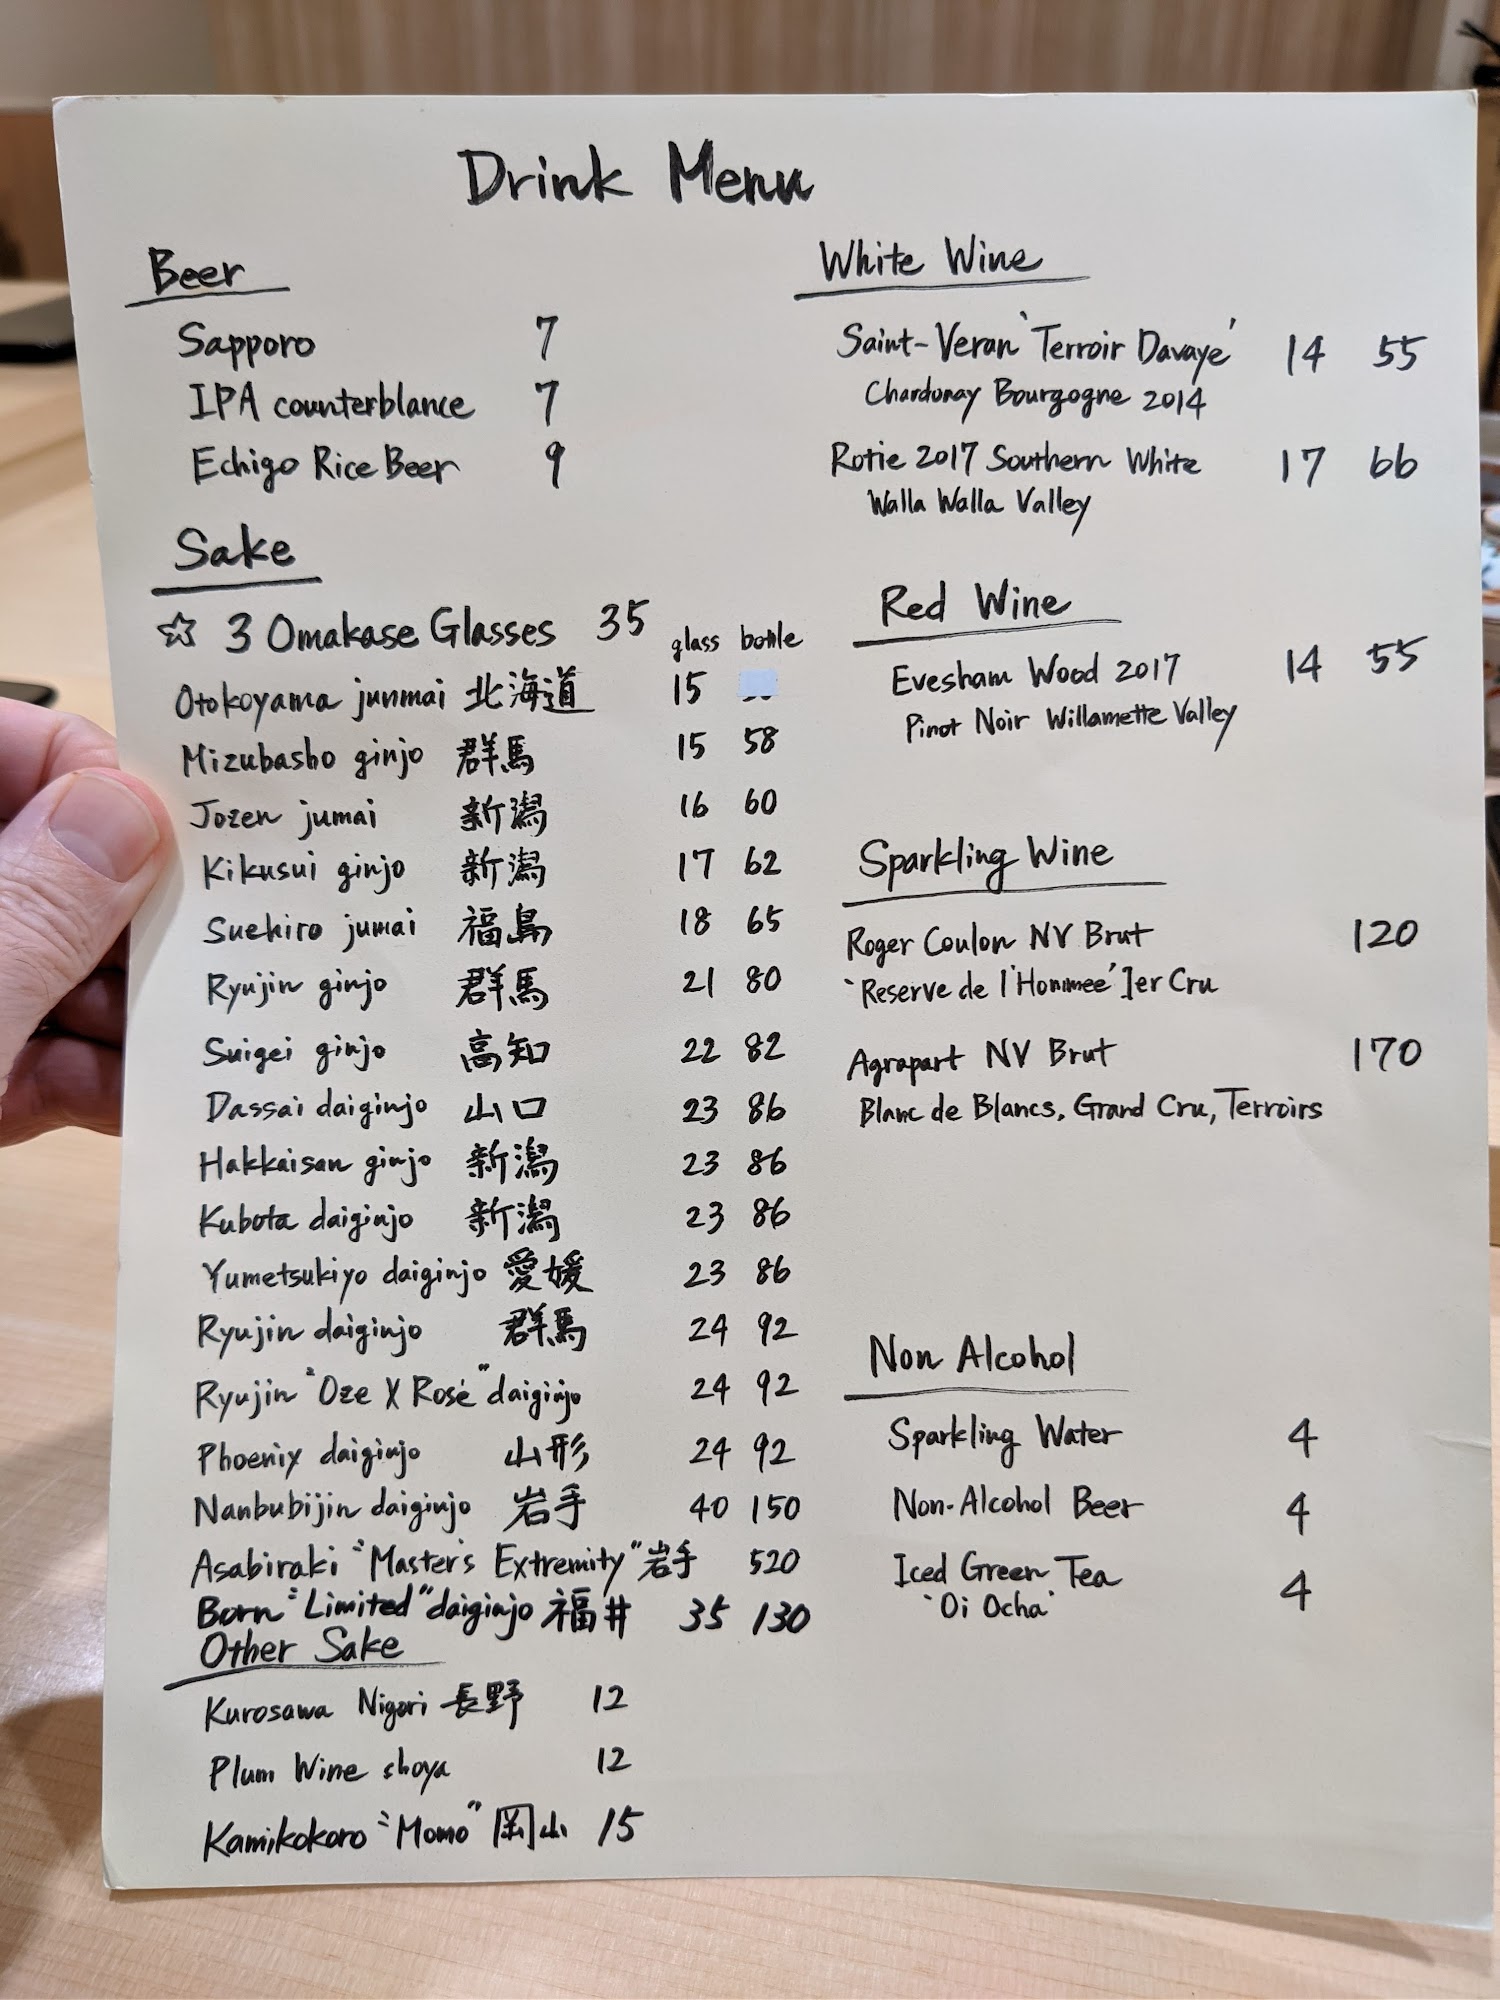 Drink Menu
Beer
Sapporo 7
IPA counterblance 7
Echigo Rice Beer 9
Sake
☆ 3 Omakase Glasses 35
glass bottle
Otokoyama junmai 北海道 15
Mizubasho ginjo 群馬 15 58
Jozen jumai 新潟 16 60
Kikusui ginjo 新潟 17 62
Suehiro jumai 福島 18 65
Ryujin ginjo 群馬 21 80
Suigei ginjo 高知 22 82
Dassai daiginjo 山口 23 86
Hakkaisan ginjo 新潟 23 86
Kubota daiginjo 新潟 23 86
Yumetsukiyo daiginjo 愛媛 23 86
Ryujin daiginjo 群馬 24 92
Ryujin "Oze X Rosé" daiginjo 24 92
Phoenix daiginjo 山形 24 92
Nanbubijin daiginjo 岩手 40 150
Asabiraki "Master's Extremity" 岩手 520
Born "Limited" daiginjo 福井 35 130
Other Sake
Kurosawa Nigori 長野 12
Plum Wine shoya 12
Kamikokoro "Momo" 岡山 15
White Wine
Saint-Veran 'Terroir Davaye' 14 55
Chardonay Bourgogne 2014
Rotie 2017 Southern White 17 66
Walla Walla Valley
Red Wine
Evesham Wood 2017 14 55
Pinot Noir Willamette Valley
Sparkling Wine
Roger Coulon NV Brut 120
'Reserve de l'Hommee' 1er Cru
Agrapart NV Brut 170
Blanc de Blancs, Grand Cru, Terroirs
Non Alcohol
Sparkling Water 4
Non-Alcohol Beer 4
Iced Green Tea 4
'Oi Ocha'